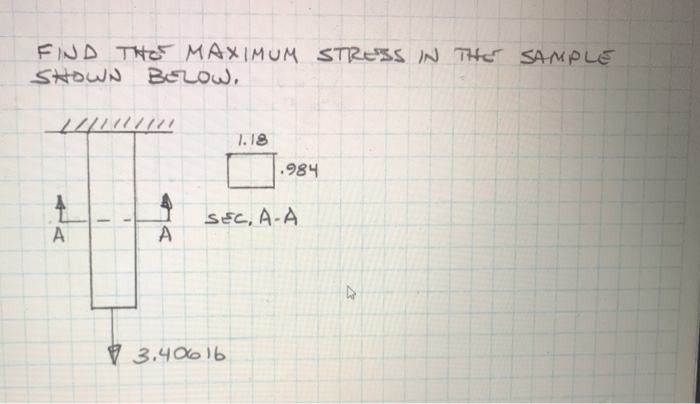 FIND THE MAXIMUM STRESS IN THE SAMPLE
SHOWN BELOW.
1.18
.984
A
A
SEC. A-A
3.406 lb